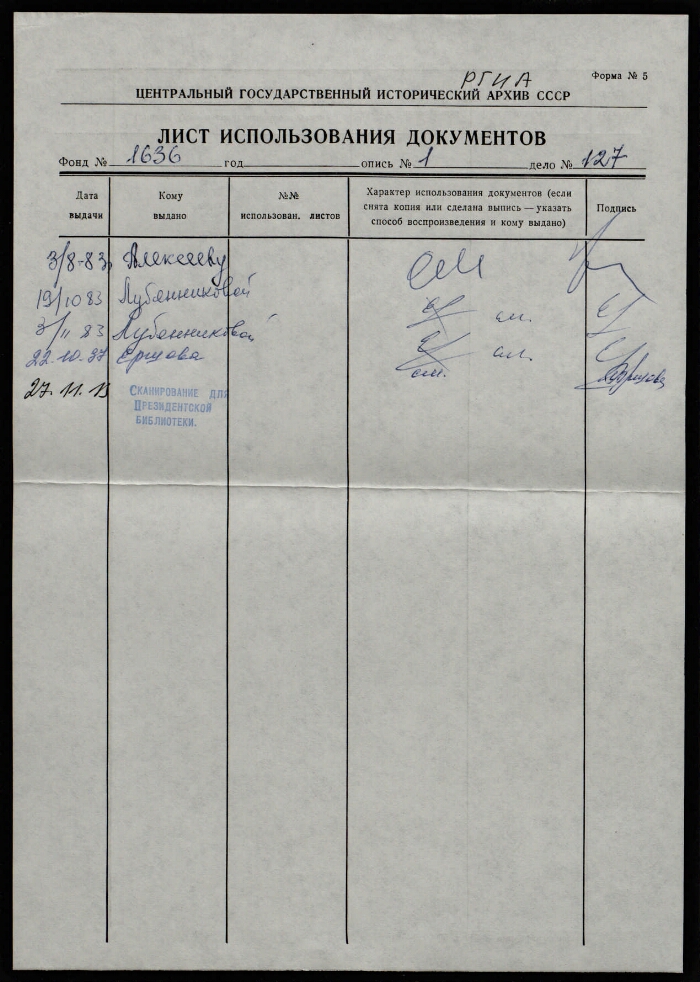 РГИА
Форма № 5
ЦЕНТРАЛЬНЫЙ ГОСУДАРСТВЕННЫЙ ИСТОРИЧЕСКИЙ АРХИВ СССР
ЛИСТ ИСПОЛЬЗОВАНИЯ ДОКУМЕНТОВ
Фонд № 1636 год опись № 1 дело № 127
Дата выдачи
Кому выдано
№№ использован. листов
Характер использования документов (если
снята копия или сделана выпись — указать
способ воспроизведения и кому выдано)
Подпись
3/8-83 Алексееву см
19/10 83 Лубянниковой см.
3/11 83 Лубянниковой см.
22.10. Ершова см.
27.11.
СКАНИРОВАНИЕ ДЛЯ
ПРЕЗИДЕНТСКОЙ
БИБЛИОТЕКИ.